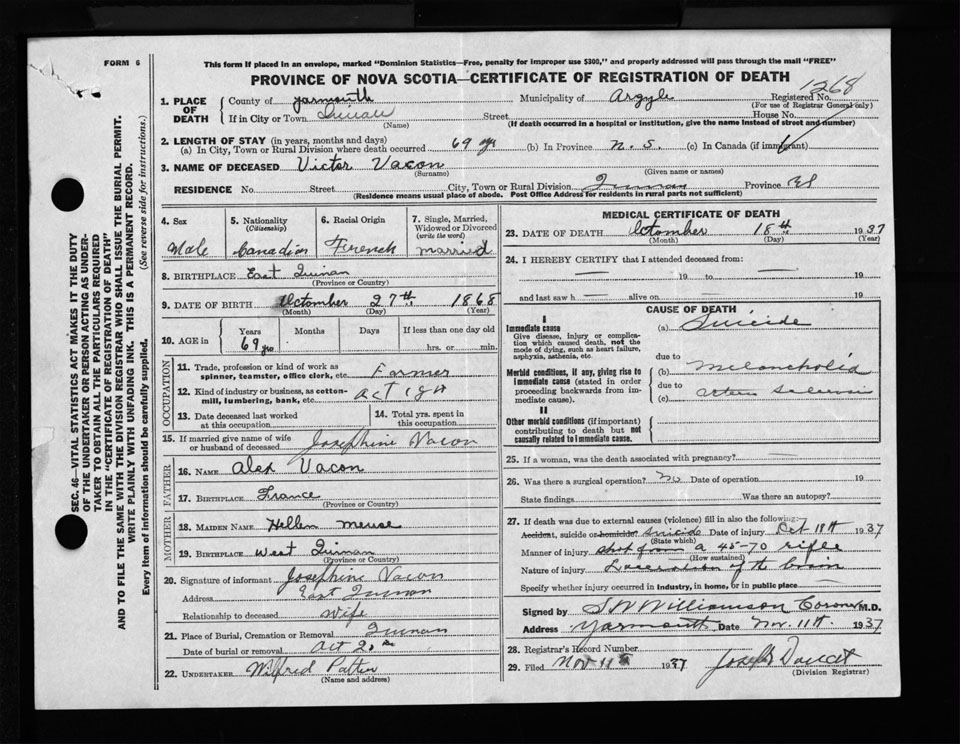 FORM 6
This form if placed in an envelope, marked "Dominion Statistics—Free, penalty for improper use $300," and properly addressed will pass through the mail "FREE"
PROVINCE OF NOVA SCOTIA—CERTIFICATE OF REGISTRATION OF DEATH
1268
1. PLACE OF DEATH
County of Yarmouth Municipality of Argyle Registered No.
(For use of Registrar General only)
If in City or Town Quinan Street House No.
(Name) (If death occurred in a hospital or institution, give the name instead of street and number)
2. LENGTH OF STAY (in years, months and days)
(a) In City, Town or Rural Division where death occurred 69 yrs (b) In Province N. S. (c) In Canada (if immigrant)
3. NAME OF DECEASED Victor Vacon
(Surname) (Given name or names)
RESIDENCE No. Street City, Town or Rural Division Quinan Province NS
(Residence means usual place of abode. Post Office Address for residents in rural parts not sufficient)
4. Sex Male
5. Nationality (Citizenship) Canadian
6. Racial Origin French
7. Single, Married, Widowed or Divorced (write the word) married
8. BIRTHPLACE East Quinan
(Province or Country)
9. DATE OF BIRTH Octomber 27th 1868
(Month) (Day) (Year)
10. AGE in Years Months Days If less than one day old
69 yrs hrs. or min.
OCCUPATION
11. Trade, profession or kind of work as spinner, teamster, office clerk, etc. Farmer
12. Kind of industry or business, as cotton-mill, lumbering, bank, etc.
13. Date deceased last worked at this occupation
14. Total yrs. spent in this occupation
15. If married give name of wife or husband of deceased Josephine Vacon
FATHER
16. NAME Alex Vacon
17. BIRTHPLACE France
(Province or Country)
MOTHER
18. MAIDEN NAME Hellen meuse
19. BIRTHPLACE West Quinan
(Province or Country)
20. Signature of informant Josephine Vacon
Address East Quinan
Relationship to deceased wife
21. Place of Burial, Cremation or Removal Quinan
Date of burial or removal Oct 20
22. UNDERTAKER Wilfred
(Name and address)
MEDICAL CERTIFICATE OF DEATH
23. DATE OF DEATH Octomber 18th 1937
(Month) (Day) (Year)
24. I HEREBY CERTIFY that I attended deceased from:
19 to 19
and last saw h alive on 19
CAUSE OF DEATH
I
Immediate cause
Give disease, injury or complication which caused death, not the mode of dying, such as heart failure, asphyxia, asthenia, etc.
(a) Suicide
due to
Morbid conditions, if any, giving rise to immediate cause (stated in order proceeding backwards from immediate cause).
(b) Melancholia
due to
(c)
II
Other morbid conditions (if important) contributing to death but not causally related to immediate cause.
25. If a woman, was the death associated with pregnancy?
26. Was there a surgical operation? No Date of operation 19
State findings Was there an autopsy?
27. If death was due to external causes (violence) fill in also the following:
Accident, suicide or homicide? suicide Date of injury Oct 18th 1937
(State which)
Manner of injury shot from a 45-70 rifle
(How sustained)
Nature of injury Laceration of the brain
Specify whether injury occurred in industry, in home, or in public place
Signed by Williamson Coroner M.D.
Address Yarmouth Date Nov. 11th 1937
28. Registrar's Record Number
29. Filed Nov 11 1937 Joseph Doucet
(Division Registrar)
SEC. 46—VITAL STATISTICS ACT MAKES IT THE DUTY
OF THE UNDERTAKER OR PERSON ACTING AS UNDER-
TAKER TO OBTAIN ALL THE PARTICULARS REQUIRED
IN THE "CERTIFICATE OF REGISTRATION OF DEATH"
AND TO FILE THE SAME WITH THE DIVISION REGISTRAR WHO SHALL ISSUE THE BURIAL PERMIT.
WRITE PLAINLY WITH UNFADING INK. THIS IS A PERMANENT RECORD.
Every item of information should be carefully supplied. (See reverse side for instructions.)